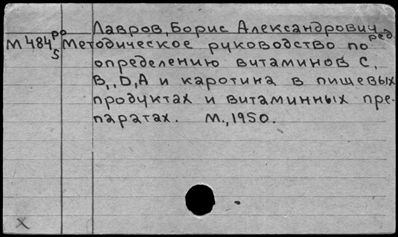 Лавров, Борис Александрович, ред.
М484ро Методическое руководство по
S определению витаминов С,
В₁, D, А и каротина в пищевых
продуктах и витаминных пре-
паратах. М., 1950.
X